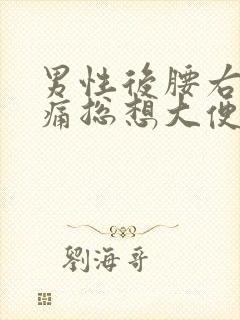 男性後腰右
痛總想大便
劉海哥